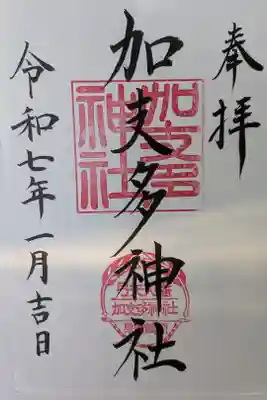 奉拝
加支多神社
加支多
神社
加支多神社
令和七年一月吉日